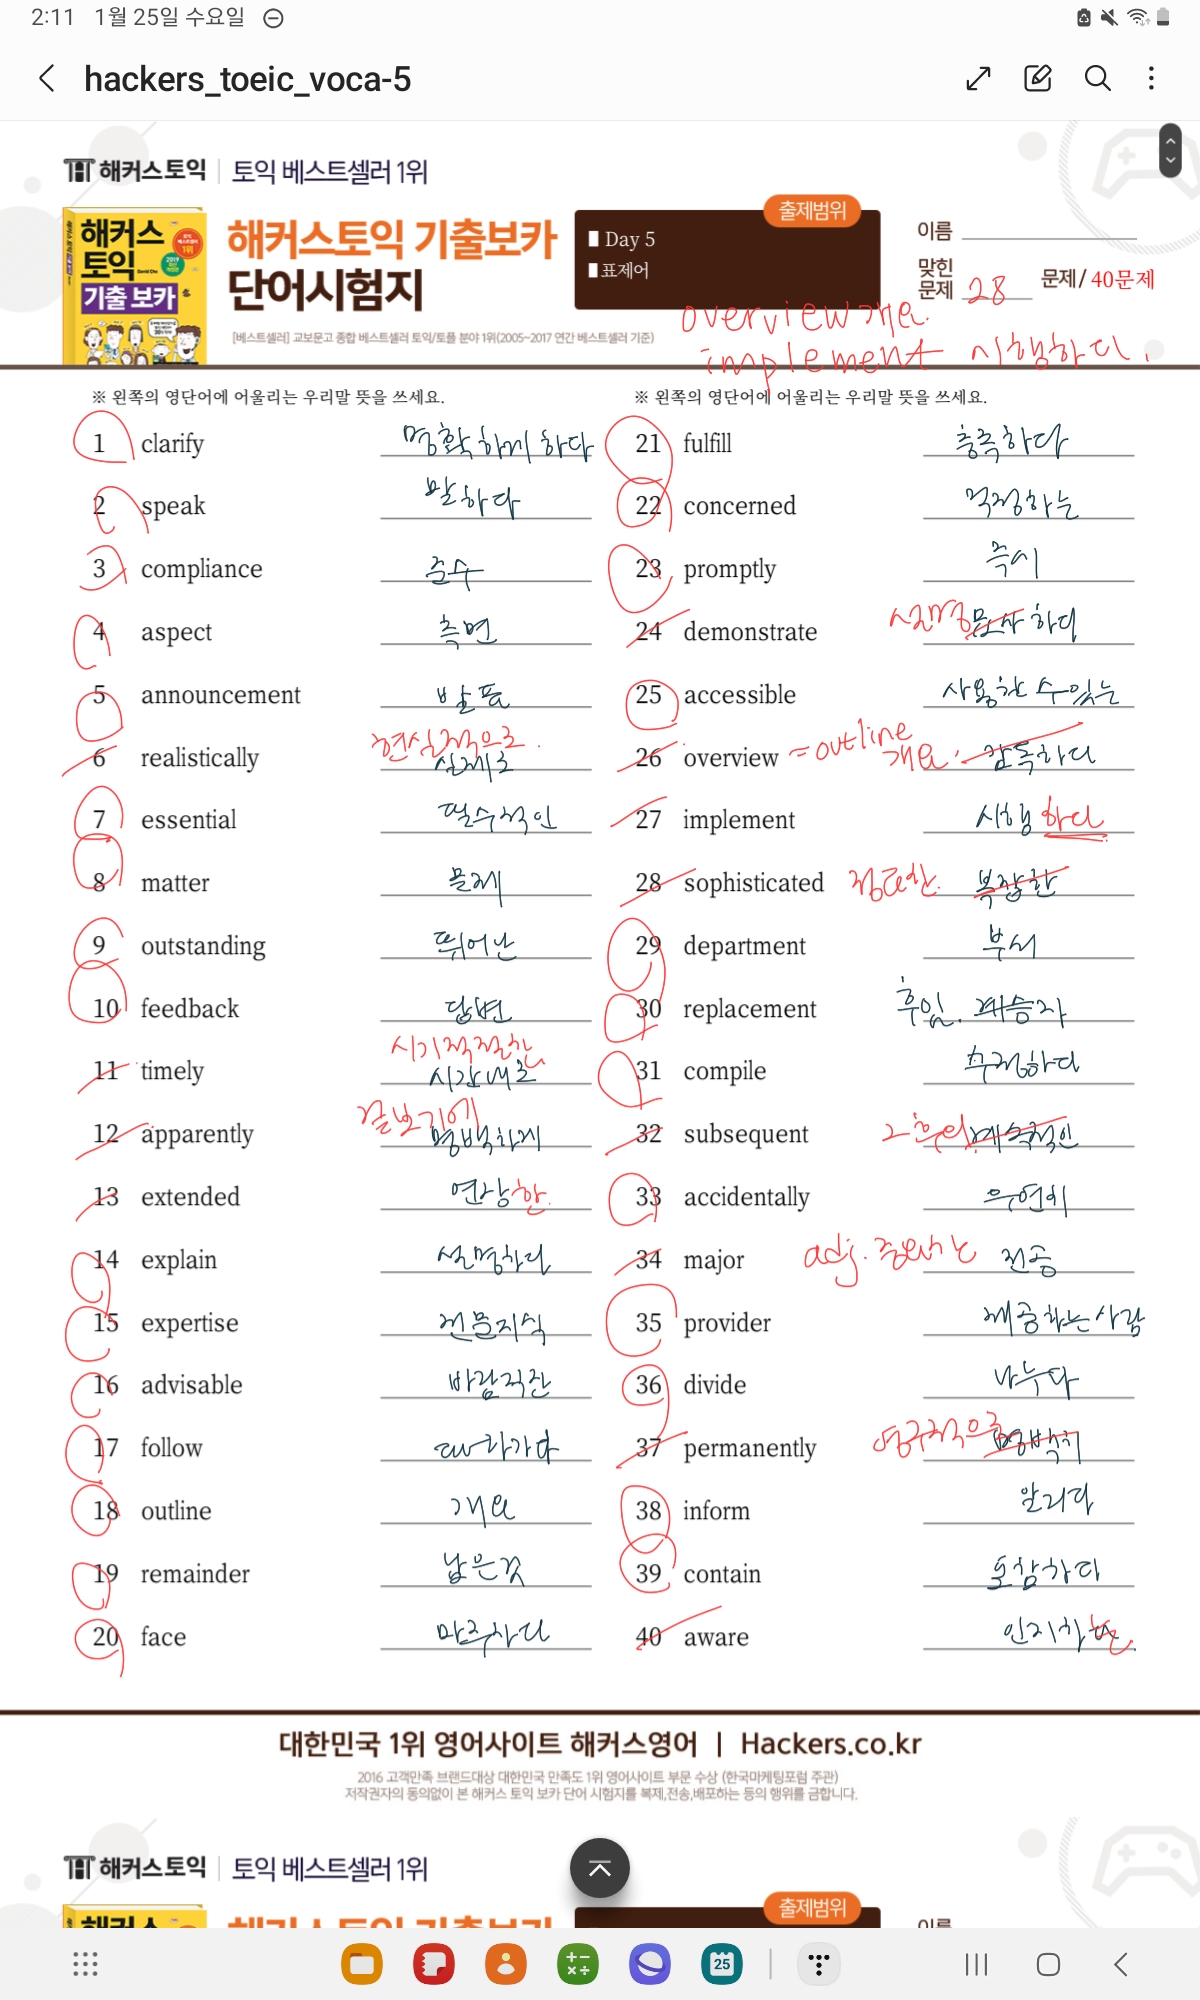 2:11 1월 25일 수요일
hackers_toeic_voca-5
해커스토익 | 토익 베스트셀러 1위
출제범위
해커스
토익
기출 보카
해커스토익 기출보카
단어시험지
Day 5
표제어
이름
맞힌
문제 28 문제/ 40문제
[베스트셀러] 교보문고 종합 베스트셀러 토익/토플 분야 1위(2005~2017 연간 베스트셀러 기준)
overview 개요.
implement 시행하다.
※ 왼쪽의 영단어에 어울리는 우리말 뜻을 쓰세요.
1 clarify 명확하게 하다
2 speak 말하다
3 compliance 준수
4 aspect 측면
5 announcement 발표
6 realistically 현실적으로. 실제로
7 essential 필수적인
8 matter 문제
9 outstanding 뛰어난
10 feedback 답변
11 timely 시기적절한 시간내로
12 apparently 겉보기에 명백하게
13 extended 연장한.
14 explain 설명하다
15 expertise 전문지식
16 advisable 바람직한
17 follow 따라가다
18 outline 개요
19 remainder 남은것
20 face 마주하다
※ 왼쪽의 영단어에 어울리는 우리말 뜻을 쓰세요.
21 fulfill 충족하다
22 concerned 걱정하는
23 promptly 즉시
24 demonstrate 설명 묘사하다
25 accessible 사용할 수 있는
26 overview = outline 개요. 감독하다
27 implement 시행하다
28 sophisticated 정교한. 복잡한
29 department 부서
30 replacement 후임. 계승자
31 compile 수정하다
32 subsequent 그 후의 계속적인
33 accidentally 우연히
34 major adj. 주요하는 전공
35 provider 제공하는 사람
36 divide 나누다
37 permanently 영구적으로 명백히
38 inform 알리다
39 contain 포함하다
40 aware 인지하는.
대한민국 1위 영어사이트 해커스영어 | Hackers.co.kr
2016 고객만족 브랜드대상 대한민국 만족도 1위 영어사이트 부문 수상 (한국마케팅포럼 주관)
저작권자의 동의없이 본 해커스 토익 보카 단어 시험지를 복제,전송,배포하는 등의 행위를 금합니다.
해커스토익 | 토익 베스트셀러 1위
출제범위
해커스토익 기출보카
이름
25